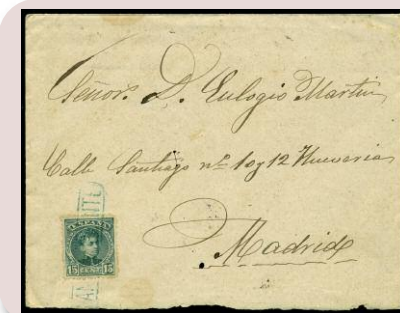 Señor D. Eulogio Martin
Calle Santiago nº 10 y 12 Hueveria
Madrid
ESPAÑA
15 CENT 15